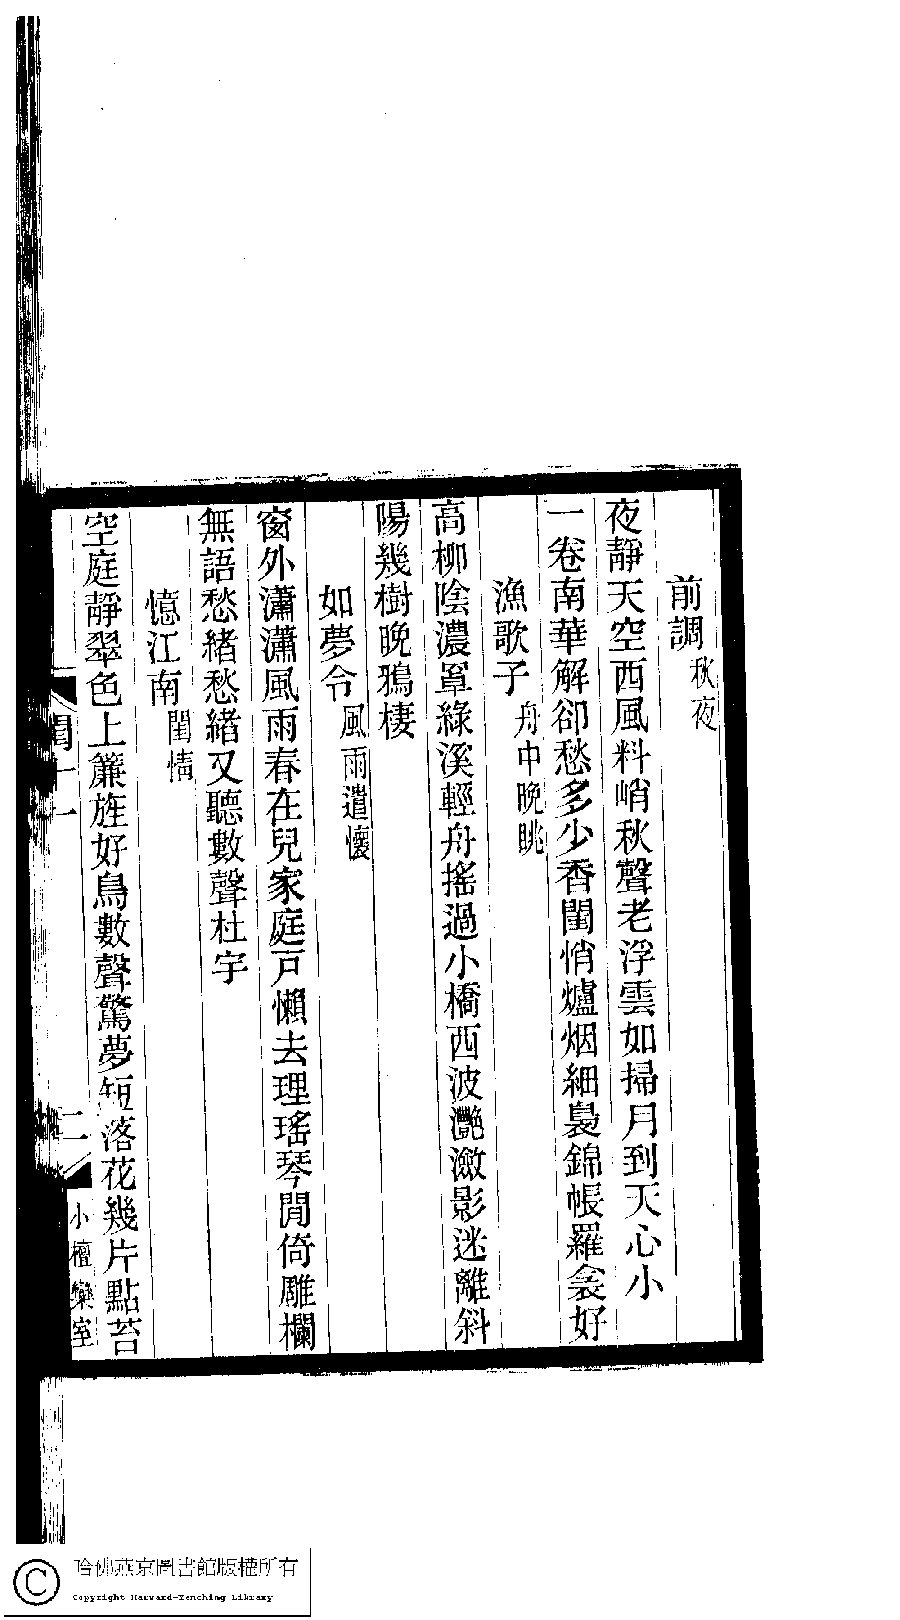 前調秋夜
夜靜天空西風料峭秋聲老浮雲如掃月到天心小
一卷南華解卻愁多少香閨悄爐烟細裊錦帳羅衾好
漁歌子舟中晚眺
高柳陰濃罩綠溪輕舟搖過小橋西波灔瀲影迷離斜
陽幾樹晚鴉棲
如夢令風雨遣懷
窗外瀟瀟風雨春在兒家庭戸懶去理瑤琴閒倚雕欄
無語愁緒愁緒又聽數聲杜宇
憶江南閨情
空庭靜翠色上簾旌好鳥數聲驚夢短落花幾片點苔
二
小檀欒室
哈佛燕京圖書館版權所有
Copyright Harvard-Yenching Library